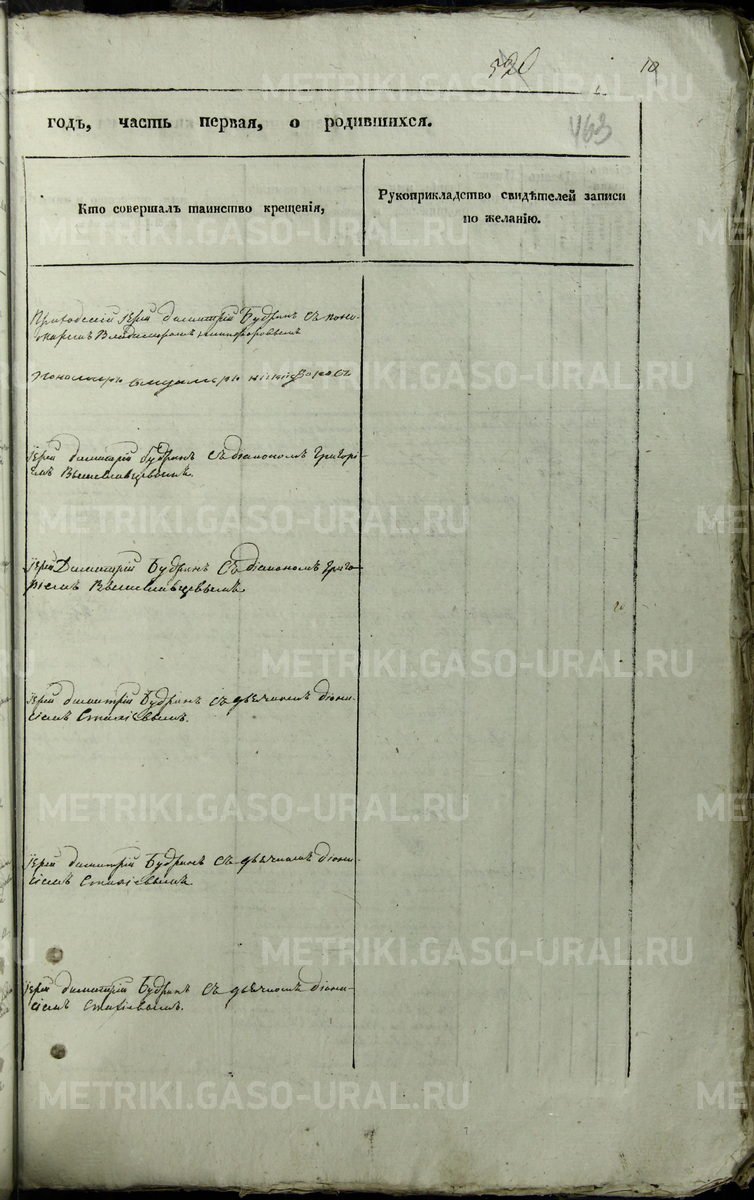 520
10
463
годъ, часть первая, о родившихся.
Кто совершалъ таинство крещенія,
Рукоприкладство свидѣтелей записи
по желанію.
Приходскій Іерей Димитрій Будринъ съ поно-
маремъ Владимиромъ Никифоровымъ
Пономарь
Іерей Димитрій Будринъ съ діакономъ Григорі-
емъ
Іерей Димитрій Будринъ съ діакономъ Григо-
ріемъ
Іерей Димитрій Будринъ съ дьячкомъ Діони-
сіемъ
Іерей Димитрій Будринъ съ дьячкомъ Діони-
сіемъ
Іерей Димитрій Будринъ съ дьячкомъ Діони-
сіемъ
METRIKI.GASO-URAL.RU